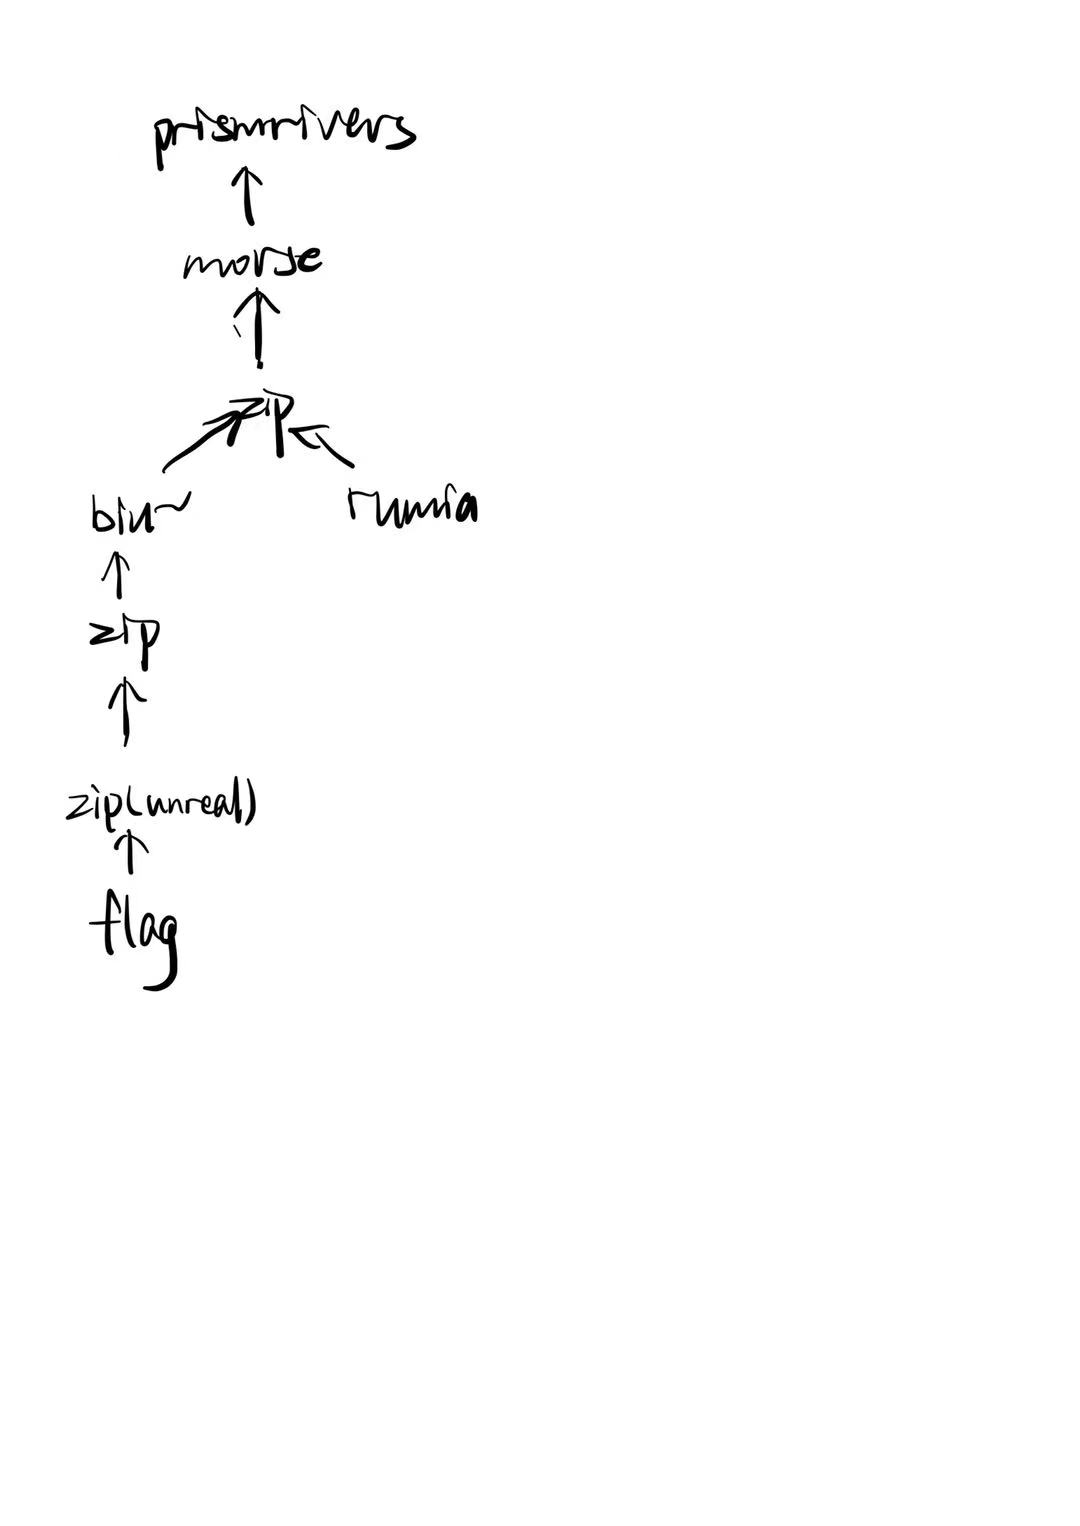 prismrivers
morse
zip
biu~ rumia
zip
zip(unreal)
flag